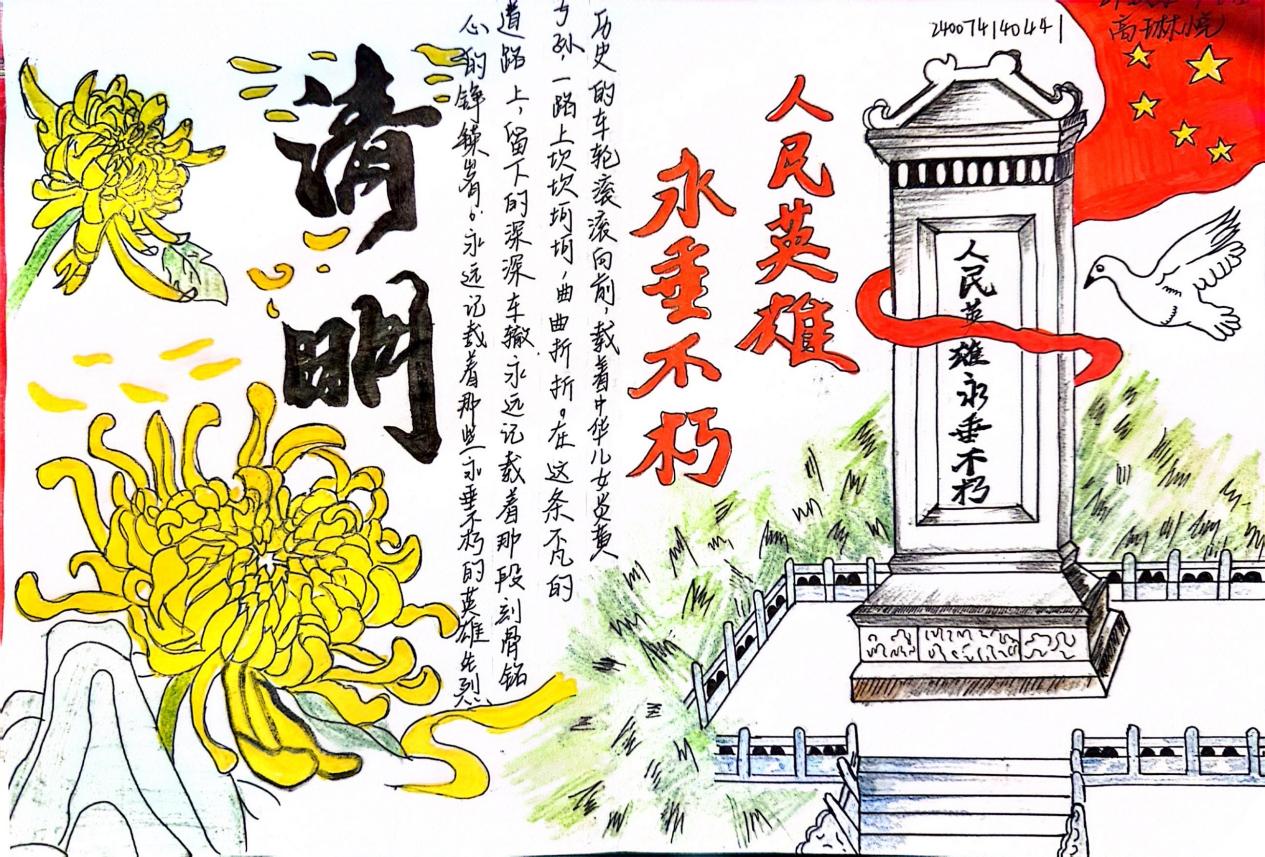 240074140441
高琳悦
人民英雄永垂不朽
人民英雄
永垂不朽
历史的车轮滚滚向前,载着中华儿女炎黄
子孙,一路上坎坎坷坷,曲曲折折。在这条不凡的
道路上,留下的深深车辙永远记载着那段刻骨铭
心的峥嵘岁月。永远记载着那些永垂不朽的英雄先烈。
清明